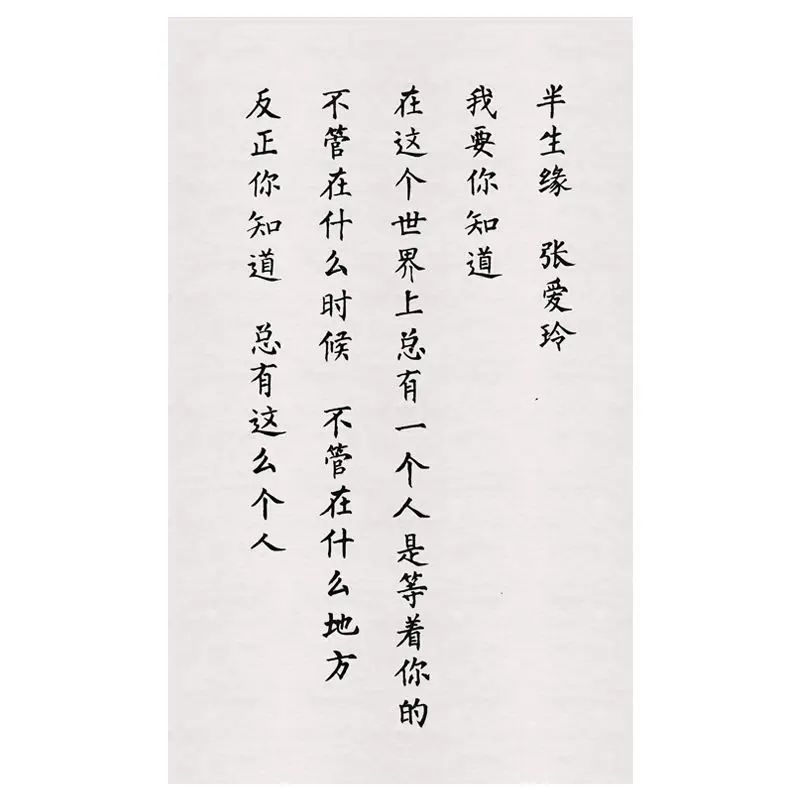 半生缘 张爱玲
我要你知道
在这个世界上总有一个人是等着你的
不管在什么时候 不管在什么地方
反正你知道 总有这么个人